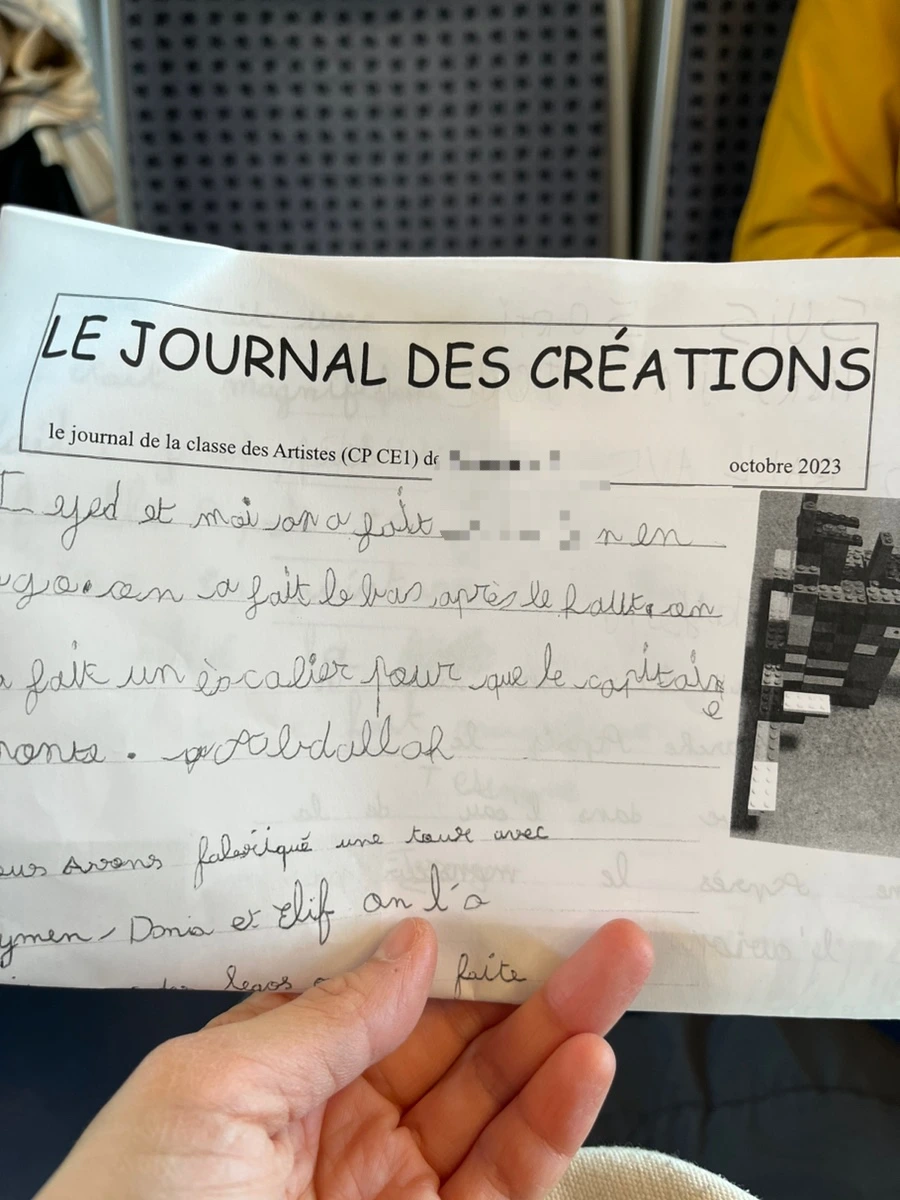 LE JOURNAL DES CRÉATIONS
le journal de la classe des Artistes (CP CE1) de
octobre 2023
I eyed et moi on a fait n en
go. on a fait le bas après le haut. on
a fait un èscalier pour que le capitain
e
monte. Abdallah
ous Avons fabriqué une tour avec
ymen, Dania et Elif on l'a
legos faite